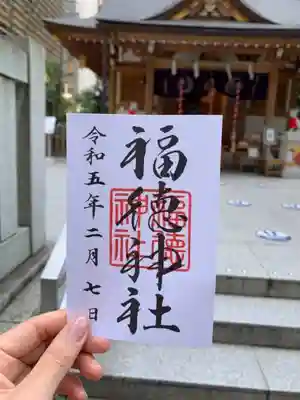 福徳神社
福徳神社
令和五年二月七日